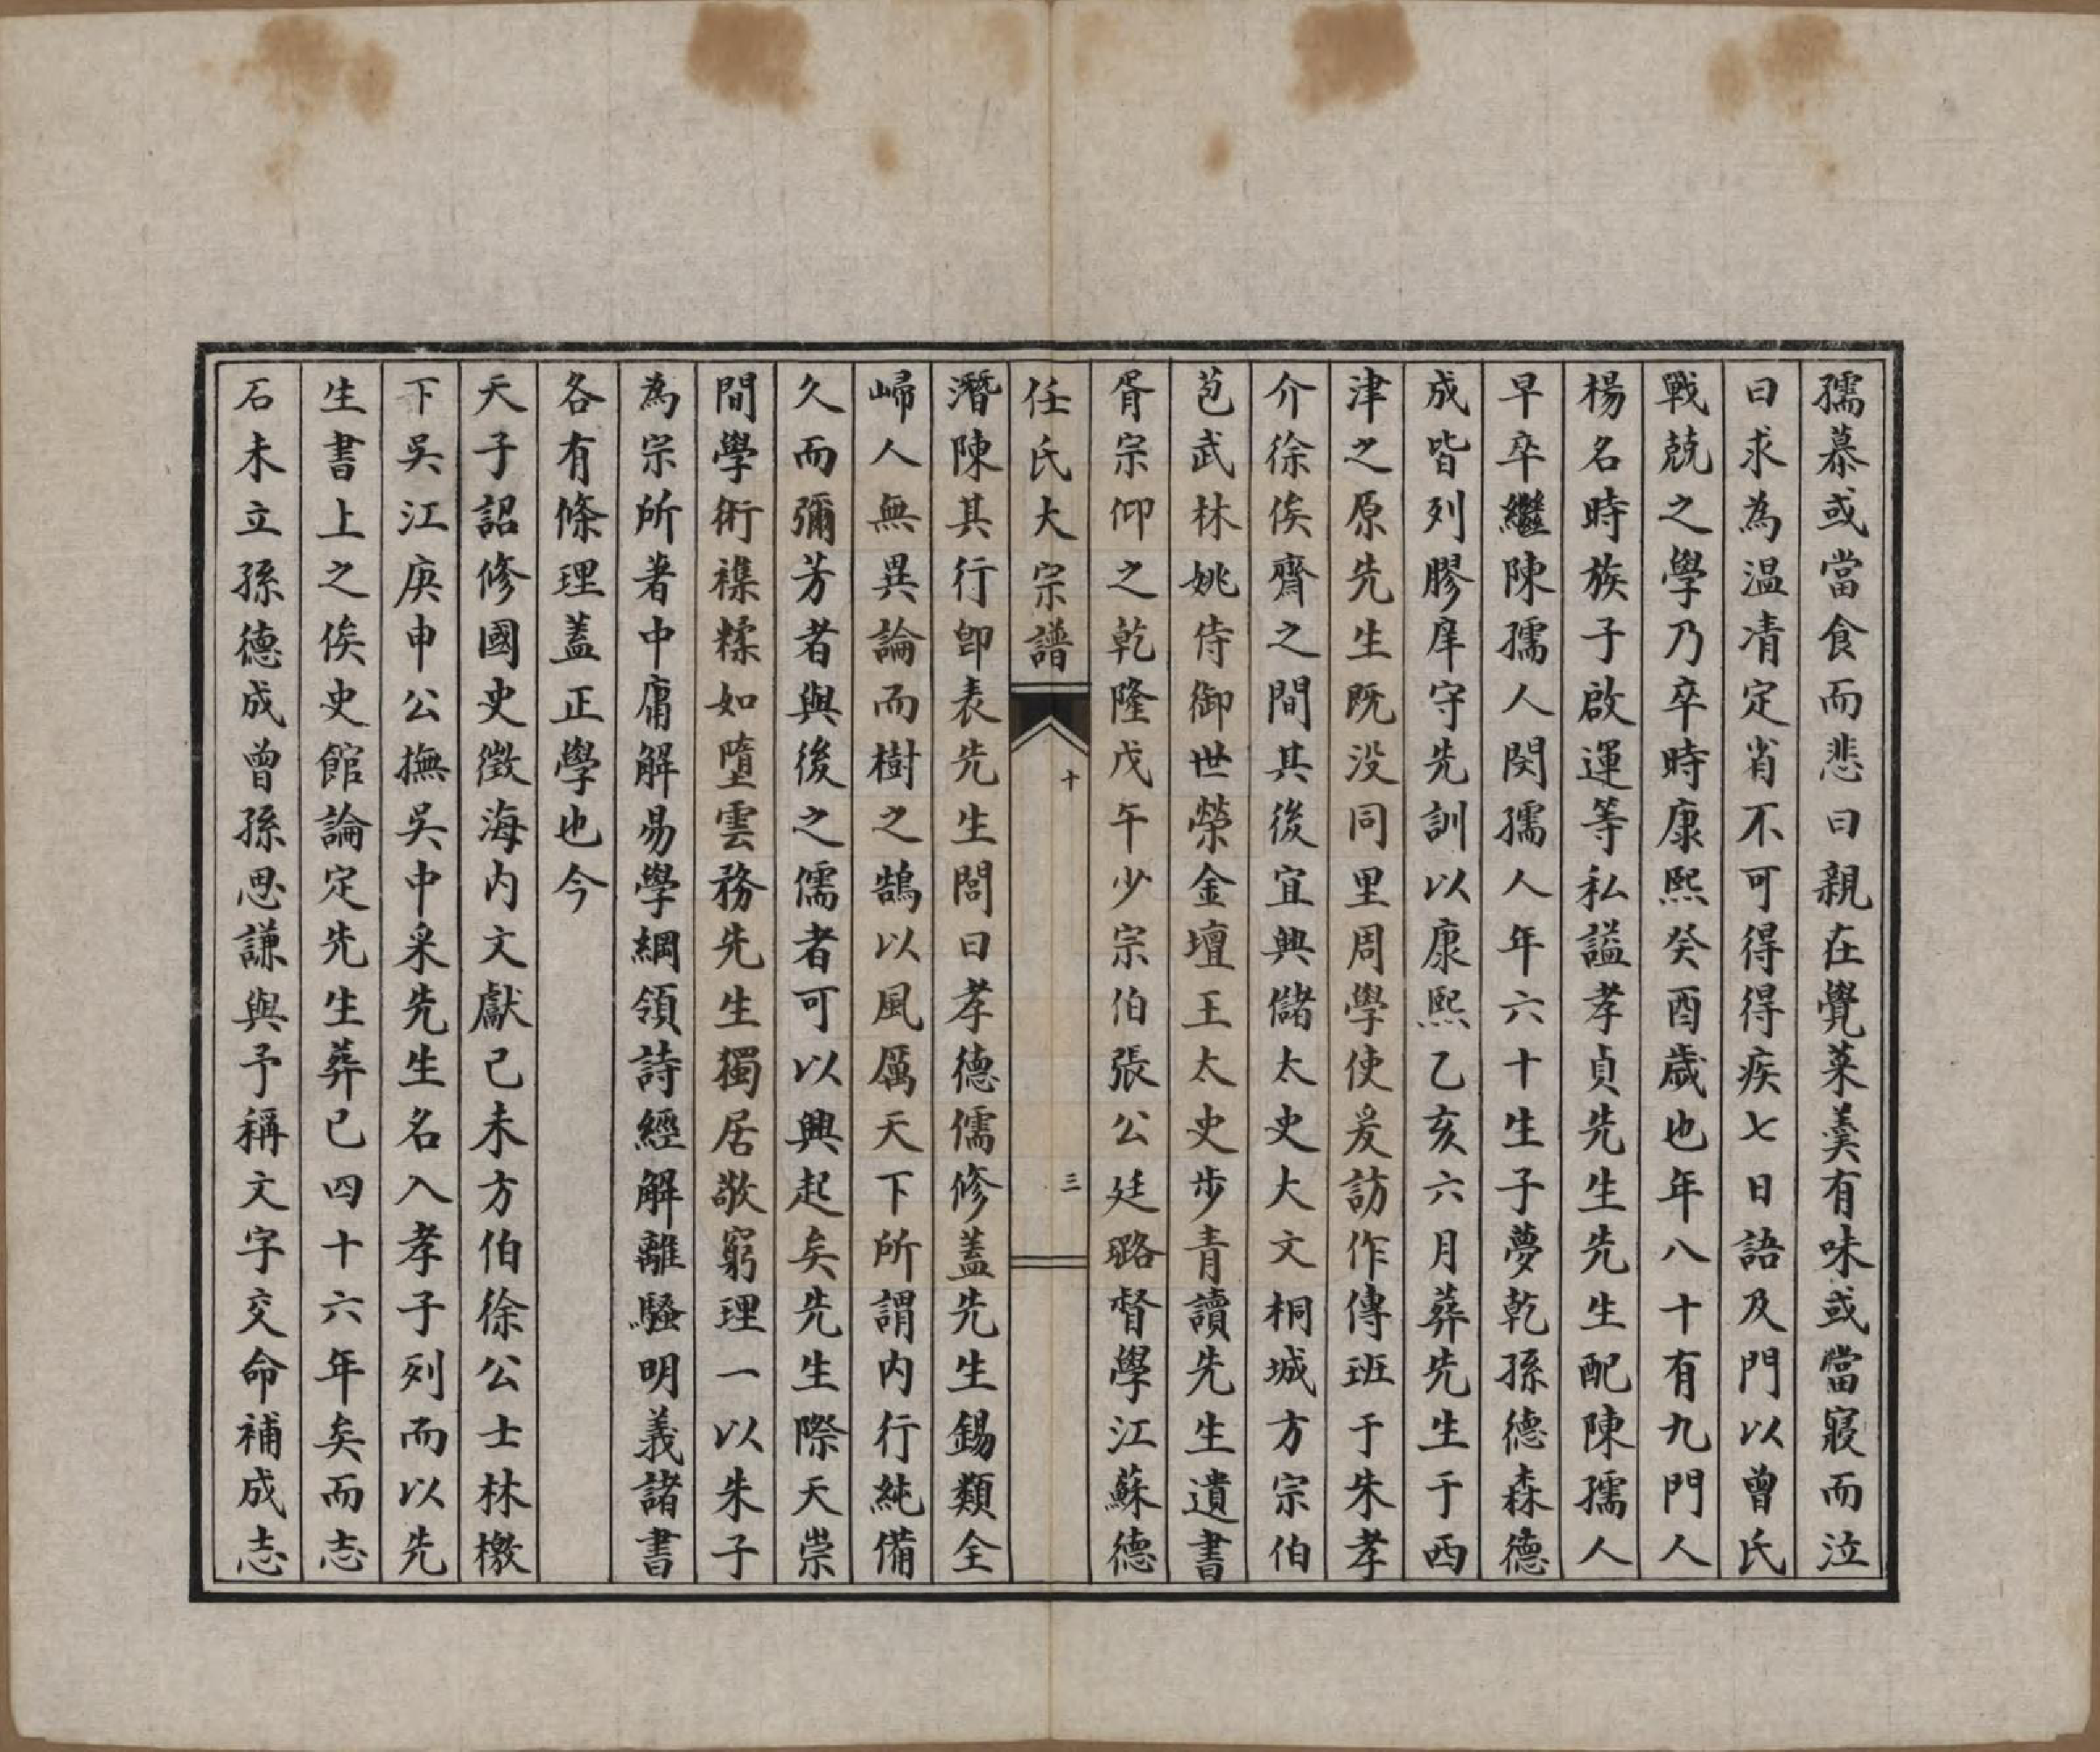 孺慕或當食而悲曰親在覺菜羹有味或當寢而泣
曰求為温凊定省不可得得疾七日語及門以曾氏
戰兢之學乃卒時康熙癸酉歲也年八十有九門人
楊名時族子啟運等私謚孝貞先生先生配陳孺人
早卒繼陳孺人閔孺人年六十生子夢乾孫德森德
成皆列膠庠守先訓以康熙乙亥六月葬先生于西
津之原先生既没同里周學使爰訪作傳班于朱孝
介徐俟齋之間其後宜興儲太史大文桐城方宗伯
苞武林姚侍御世榮金壇王太史步青讀先生遺書
胥宗仰之乾隆戊午少宗伯張公廷璐督學江蘇德
任氏大宗譜
十
三
潛陳其行卽表先生閭曰孝德儒修蓋先生錫類全
歸人無異論而樹之鵠以風厲天下所謂内行純備
久而彌芳者與後之儒者可以興起矣先生際天崇
間學術襍糅如墮雲霧先生獨居敬窮理一以朱子
為宗所著中庸解易學綱領詩經解離騷明義諸書
各有條理蓋正學也今
天子詔修國史徵海内文獻己未方伯徐公士林檄
下吳江庚申公撫吳中采先生名入孝子列而以先
生書上之俟史館論定先生葬已四十六年矣而志
石未立孫德成曾孫思謙與予稱文字交命補成志